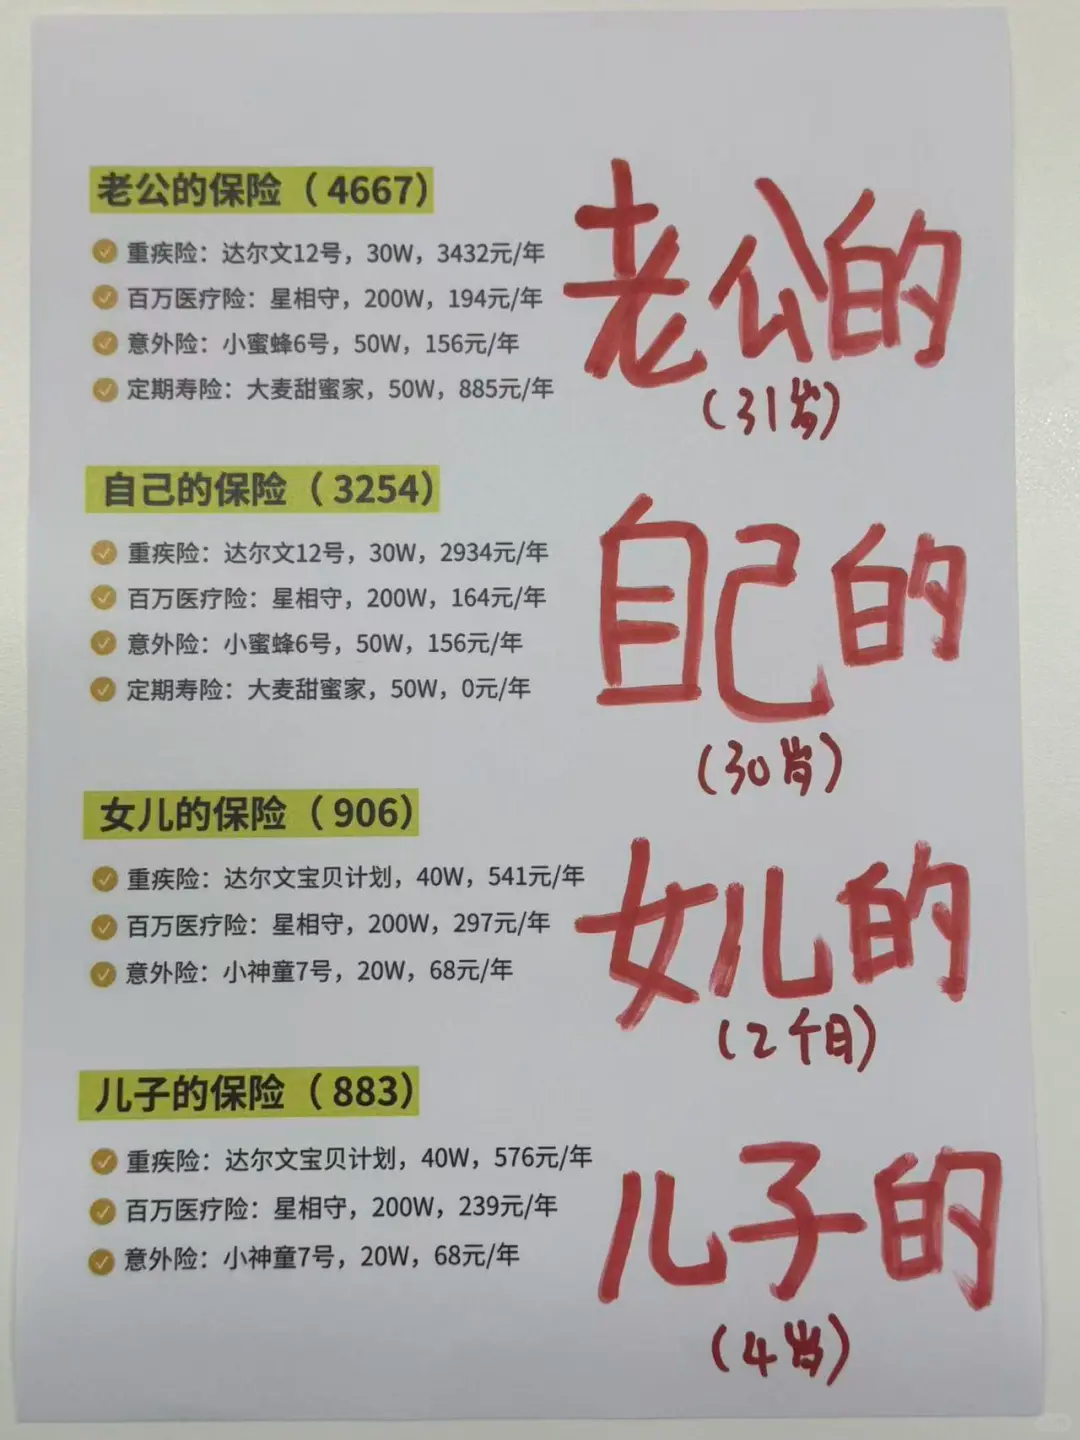 老公的保险（4667）
老公的
重疾险：达尔文12号，30W，3432元/年
百万医疗险：星相守，200W，194元/年
意外险：小蜜蜂6号，50W，156元/年
定期寿险：大麦甜蜜家，50W，885元/年
（31岁）
自己的保险（3254）
自己的
重疾险：达尔文12号，30W，2934元/年
百万医疗险：星相守，200W，164元/年
意外险：小蜜蜂6号，50W，156元/年
定期寿险：大麦甜蜜家，50W，0元/年
（30岁）
女儿的保险（906）
女儿的
重疾险：达尔文宝贝计划，40W，541元/年
百万医疗险：星相守，200W，297元/年
意外险：小神童7号，20W，68元/年
（2个月）
儿子的保险（883）
儿子的
重疾险：达尔文宝贝计划，40W，576元/年
百万医疗险：星相守，200W，239元/年
意外险：小神童7号，20W，68元/年
（4岁）